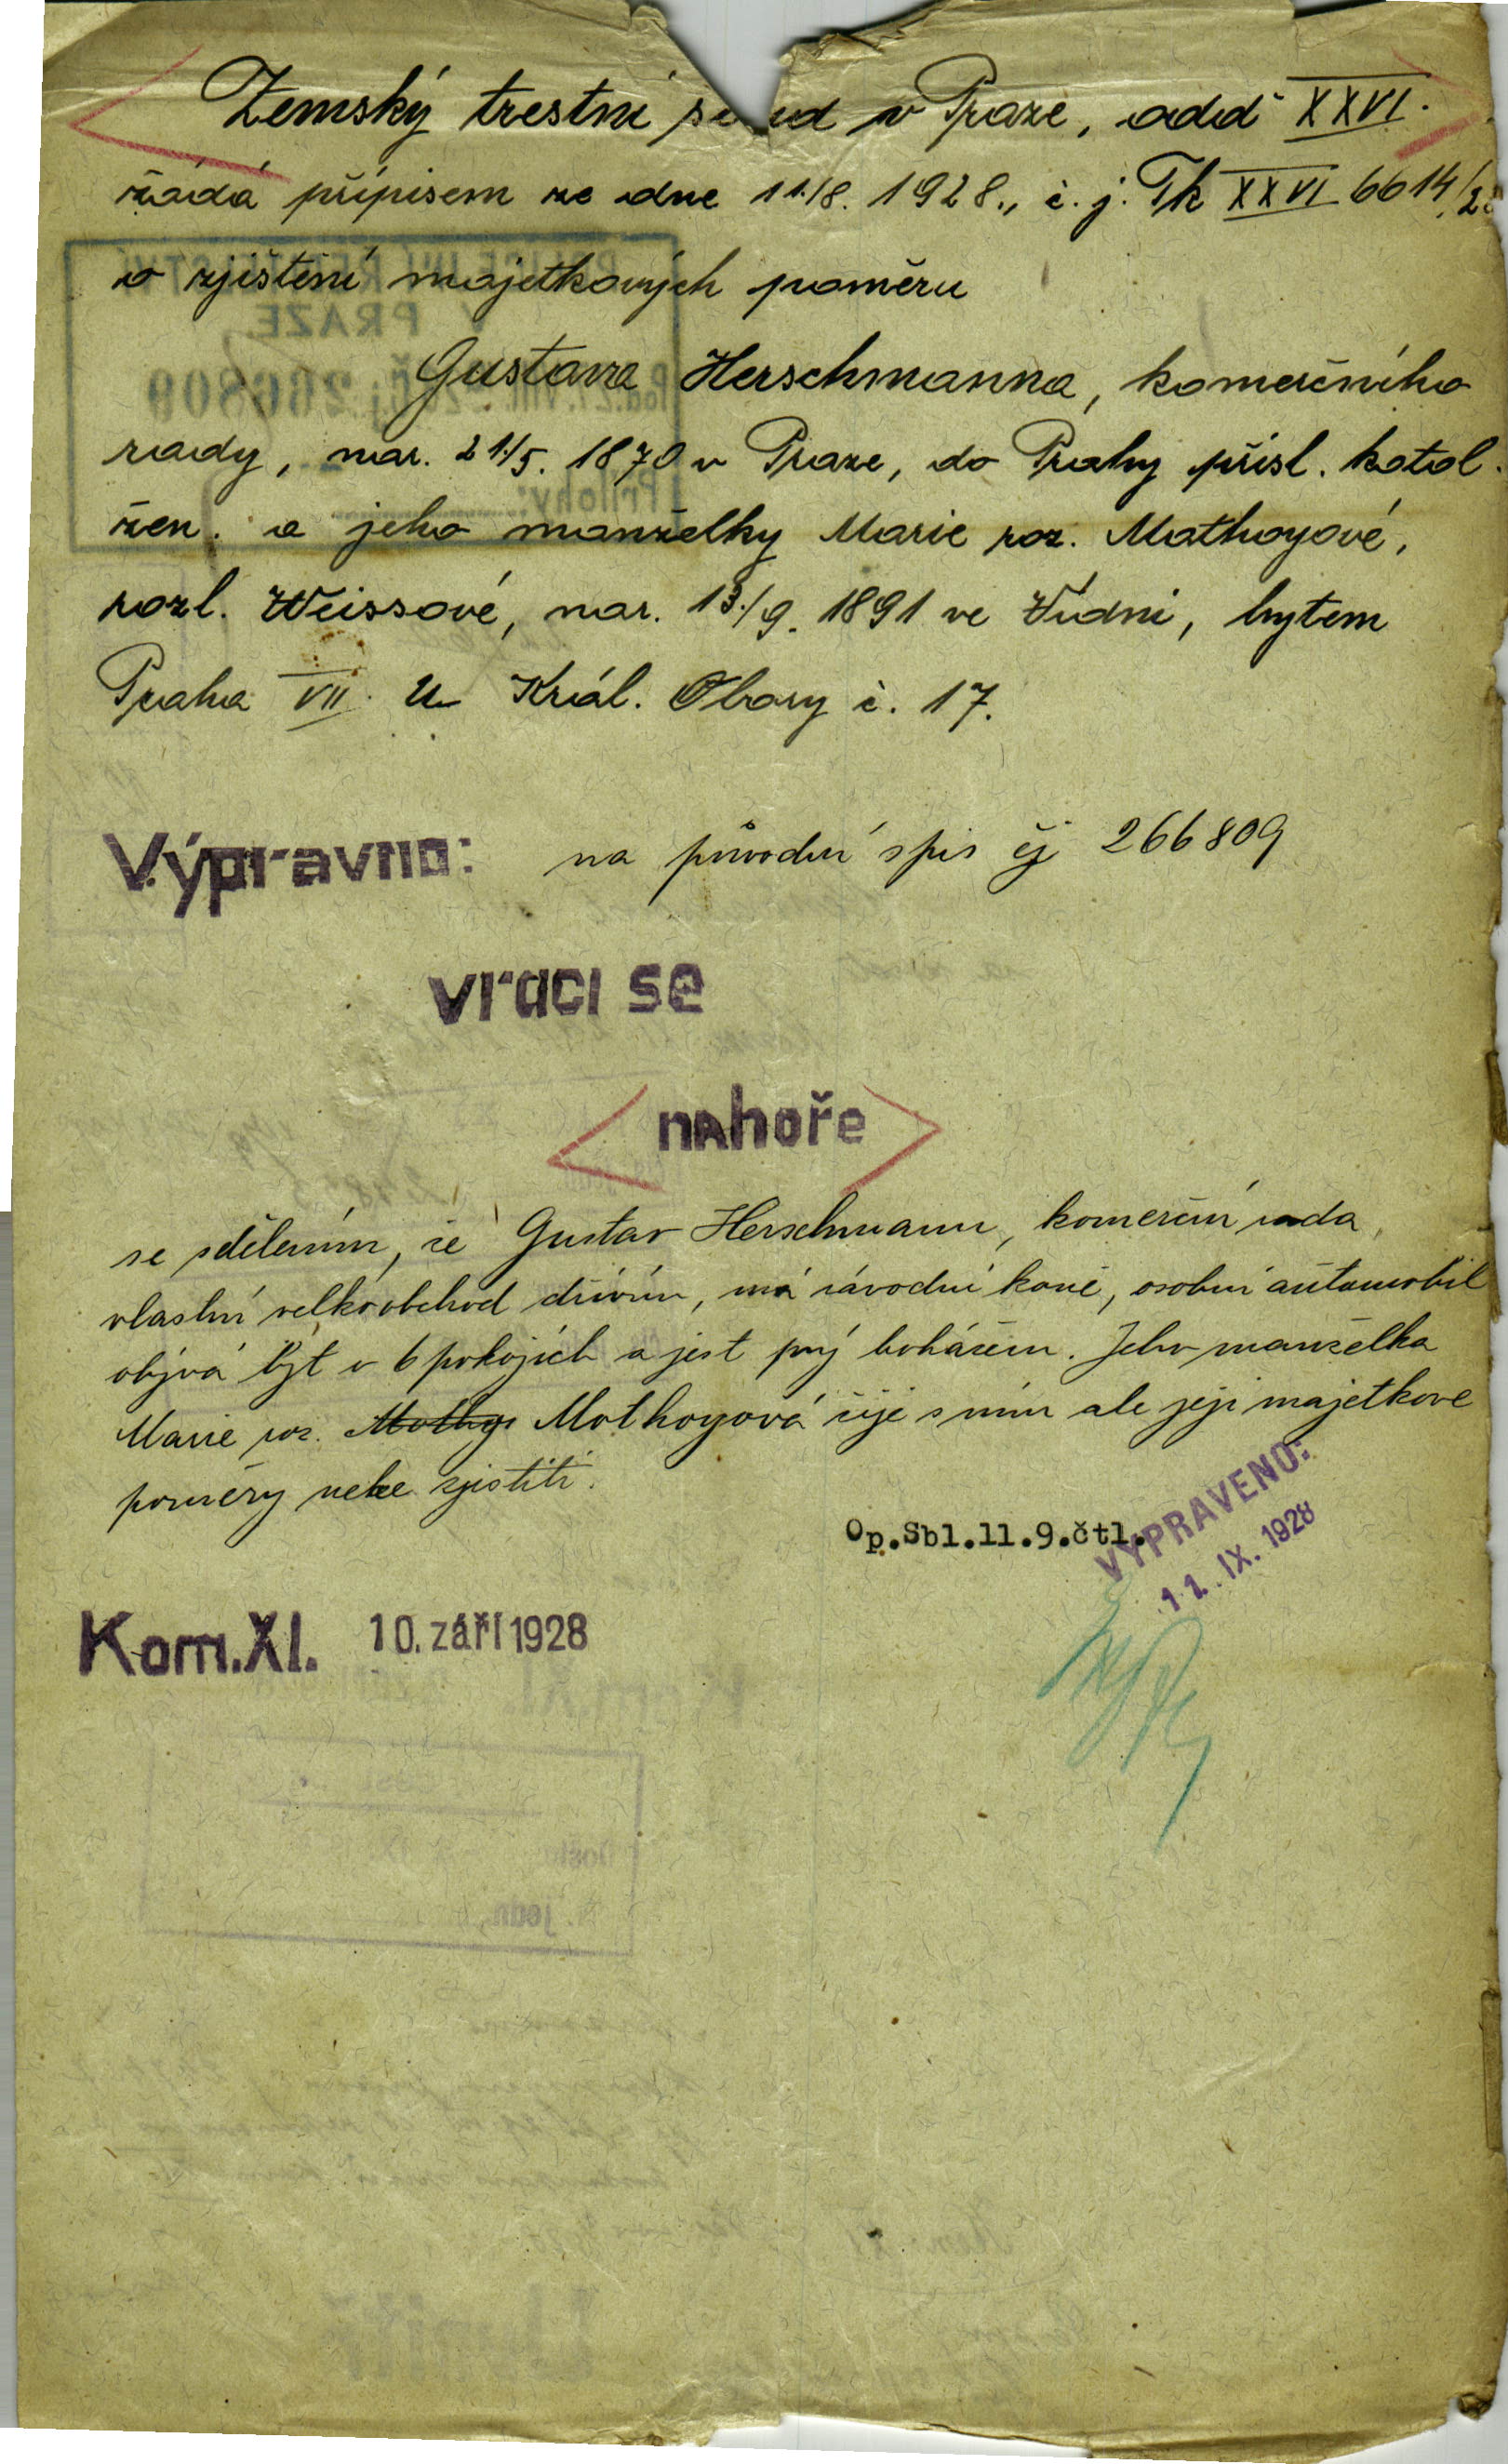 Zemský trestní soud v Praze, odd XXVI.
žádá přípisem ze dne 11./8. 1928., č. j. Tk XXVI 6614/28
o zjištění majetkových poměru
Gustava Herschmanna, komerčního
rady, nar. 21./5. 1870 v Praze, do Prahy přísl. katol.
žen. a jeho manželky Marie roz. Mathoyové,
rozl. Weissové, nar. 13./9. 1891 ve Vídni, bytem
Praha VII. U Král. Obory č. 17.
Výpravno: na původní spis čj 266809
vrací se
nahoře
se sdělením, že Gustav Herschmann, komerční rada,
vlastní velkoobchod dřívím, má závodní koně, osobní automobil
obývá byt o 6 pokojích a jest prý boháčem. Jeho manželka
Marie roz. Mothoyová žije s ním ale její majetkové
poměry nelze zjistiti.
Op.Sbl.11.9.čtl.
VYPRAVENO:
11. IX. 1928
Kom.XI. 10. září 1928